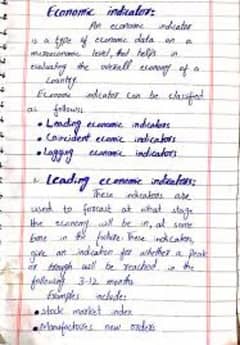 Economic indicators:
An economic indicator
is a type of economic data on a
macroeconomic level, that helps in
evaluating the overall economy of a
Country.
Economic indicator can be classified
as follows:
• Leading economic indicators
• Coincident economic indicators
• Lagging economic indicators
Leading economic indicators:
These indicators are
used to forcast at what stage
the economy will be in, at some
time in the future. These indicators,
give an indication for whether a peak
or trough will be reached in the
following 3-12 months
Examples include:
• stock market index
• Manufactures new orders